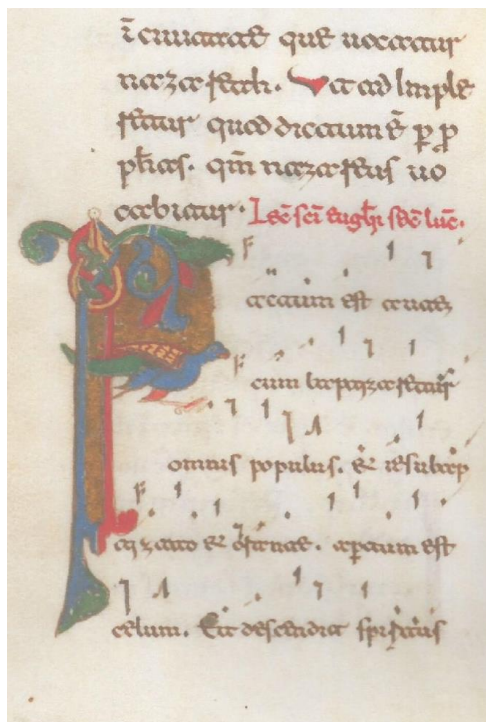 ī ciuitate que uocatur
nazareth. Vt adimple
retur quod dictum ē̄ ꝑ ꝓ
ph̄as. qm̄ nazareus uo
cabitur. Lec̄ sc̄i eugl̄ii sec̄ luc̄.
Factum est autem
cum baptizaretur
omnis populus. & iesu bap
tizato & orante. apertum est
celum. Et descendit spiritus